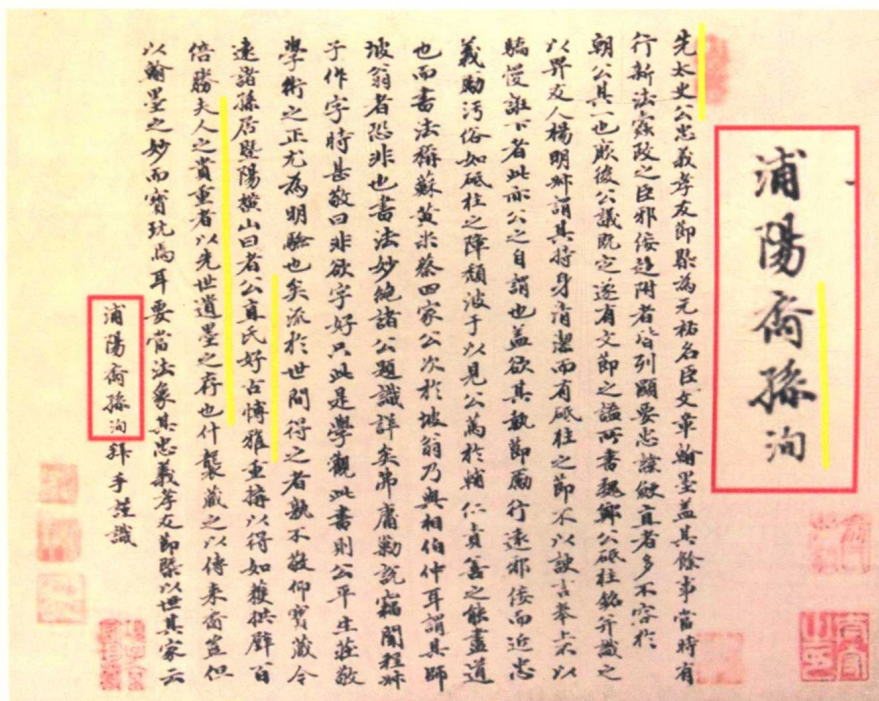 浦陽裔孫洵
先太史公忠義孝友節槩為元祐名臣文章翰墨蓋其餘事當時有
行新法蠹政之臣邪佞趍附者皆列顯要忠諒鯁直者多不容於
朝公其一也厥後公議既定遂有文節之謚所書魏鄭公砥柱銘并識之
以畀友人楊明叔謂其持身清潔而有砥柱之節不以諛言奉上不以
驕慢誑下者此亦公之自謂也蓋欲其執節勵行遠邪佞而近忠
義勵污俗如砥柱之障頹波于以見公篤於輔仁責善之能盡道
也而書法稱蘇黃米蔡四家公次於坡翁乃與相伯仲耳謂其師
坡翁者恐非也書法妙絕諸公題識詳矣弗庸勦說竊聞程叔
子作字時甚敬曰非欲字好只此是學觀此書則公平生莊敬
學術之正尤為明驗也矣流於世間得之者孰不敬仰寶藏今
遠諸孫居暨陽橫山曰者公直氏好古博雅重購以得如獲拱璧百
倍勝夫人之貴重者以先世遺墨之存也什襲藏之以傳来裔豈但
以翰墨之妙而寶玩焉耳要當法象其忠義孝友節槩以世其家云
浦陽裔孫洵拜手謹識